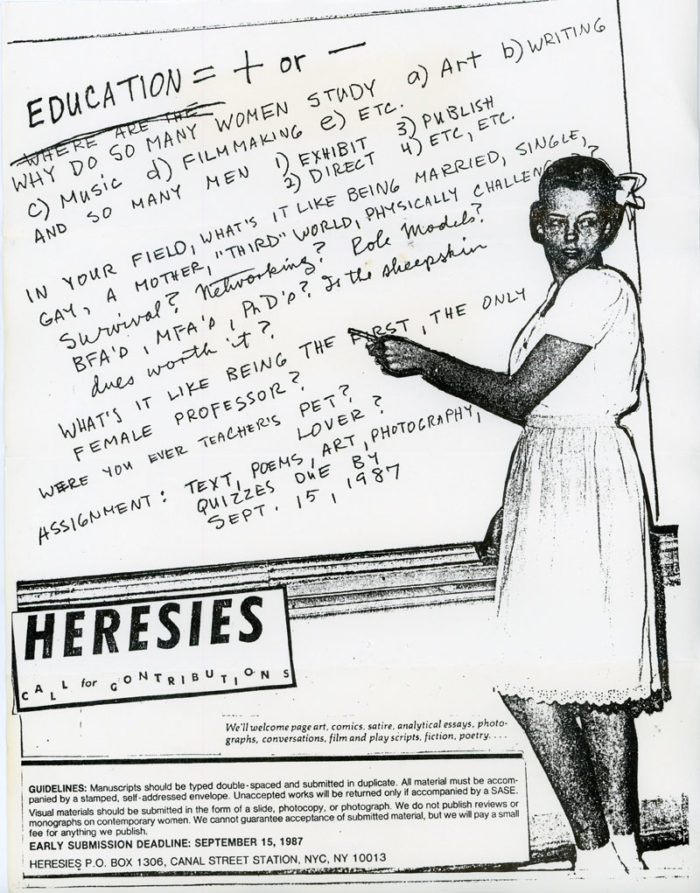 EDUCATION = + or −
WHERE ARE THE
WHY DO SO MANY WOMEN STUDY a) Art b) WRITING
c) Music d) FILMMAKING e) ETC.
AND SO MANY MEN 1) EXHIBIT 3) PUBLISH
2) DIRECT 4) ETC, ETC.
IN YOUR FIELD, WHAT'S IT LIKE BEING MARRIED, SINGLE,
GAY, A MOTHER, "THIRD" WORLD, PHYSICALLY CHALLEN ?
Survival? Networking? Role Models?
BFA'S, MFA'S, PhD'S? Is the sheepskin
dues worth it?
WHAT'S IT LIKE BEING THE FIRST, THE ONLY
FEMALE PROFESSOR?
WERE YOU EVER TEACHER'S PET?
LOVER?
ASSIGNMENT: TEXT, POEMS, ART, PHOTOGRAPHY,
QUIZZES DUE BY
SEPT. 15, 1987
HERESIES
CALL for CONTRIBUTIONS
We'll welcome page art, comics, satire, analytical essays, photo-
graphs, conversations, film and play scripts, fiction, poetry. . . .
GUIDELINES: Manuscripts should be typed double-spaced and submitted in duplicate. All material must be accom-
panied by a stamped, self-addressed envelope. Unaccepted works will be returned only if accompanied by a SASE.
Visual materials should be submitted in the form of a slide, photocopy, or photograph. We do not publish reviews or
monographs on contemporary women. We cannot guarantee acceptance of submitted material, but we will pay a small
fee for anything we publish.
EARLY SUBMISSION DEADLINE: SEPTEMBER 15, 1987
HERESIES P.O. BOX 1306, CANAL STREET STATION, NYC, NY 10013